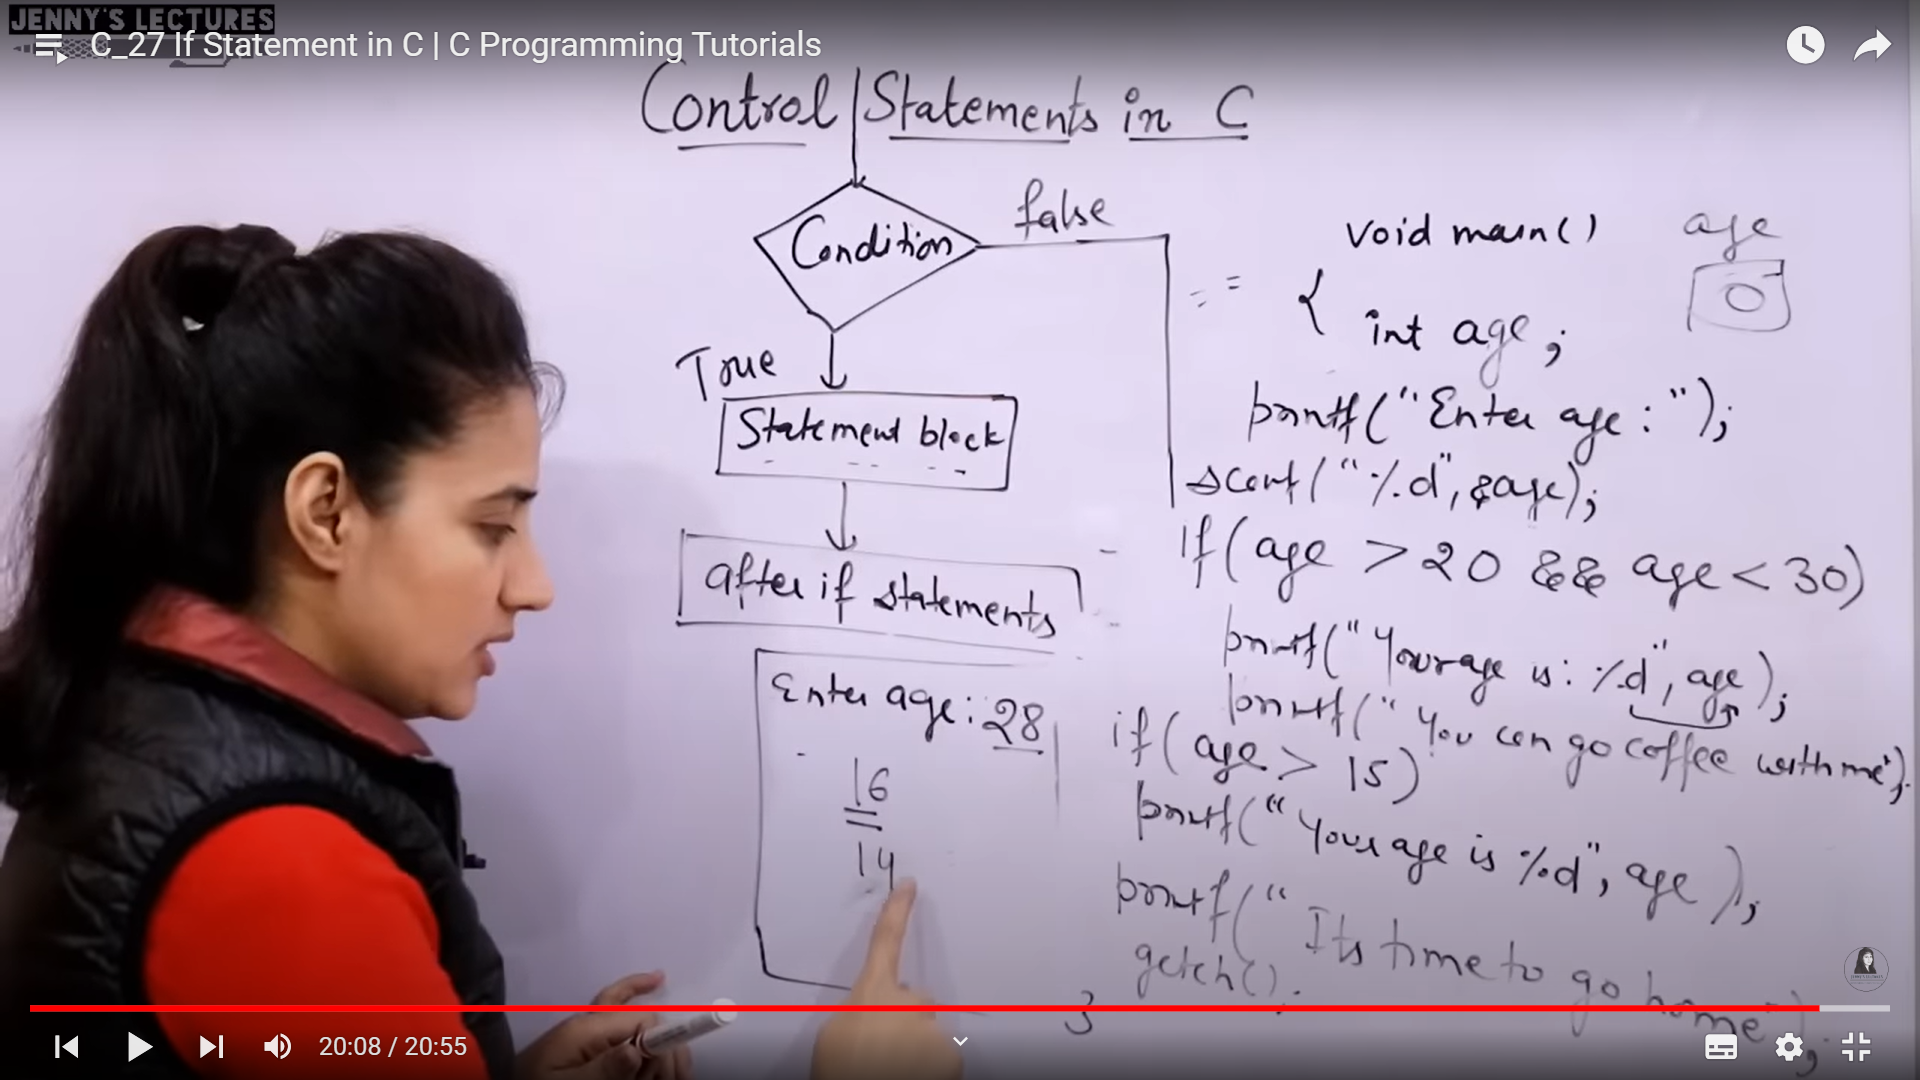 JENNY'S LECTURES
C_27 If Statement in C | C Programming Tutorials
Control Statements in C
Condition
false
True
Statement block
after if statements
Enter age: 28
16
14
age
0
void main()
{
int age;
printf("Enter age: ");
scanf("%d", &age);
if(age > 20 && age < 30)
printf("Your age is: %d", age);
printf("You can go coffee with me");
if(age > 15)
printf("Your age is %d", age);
printf("Its time to go home");
getch();
}
20:08 / 20:55